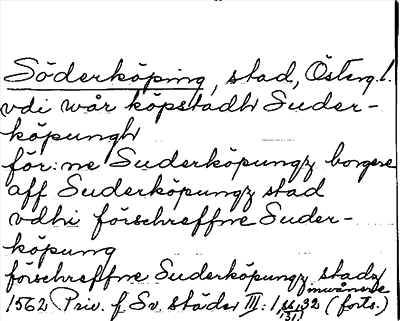 Söderköping, stad, Österg.l.
vdi wår köpstadh Suder-
köpungh
för:ne Suderköpungz borgere
aff Suderköpungz stad
vdhi förschreffne Suder-
köpung
förschreffne Suderköpungz stadz
inwånere
1562 Priv. f Sv städer III: 1 32 (forts.)
131